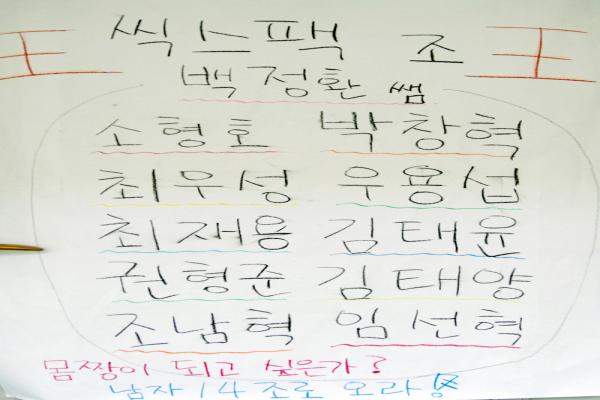 王 씩스팩 조 王
백정환 쌤
소형호 박창혁
최우성 우용섭
최재용 김태윤
권형준 김태양
조남혁 임선혁
몸짱이 되고 싶은가?
남자 14조로 오라!